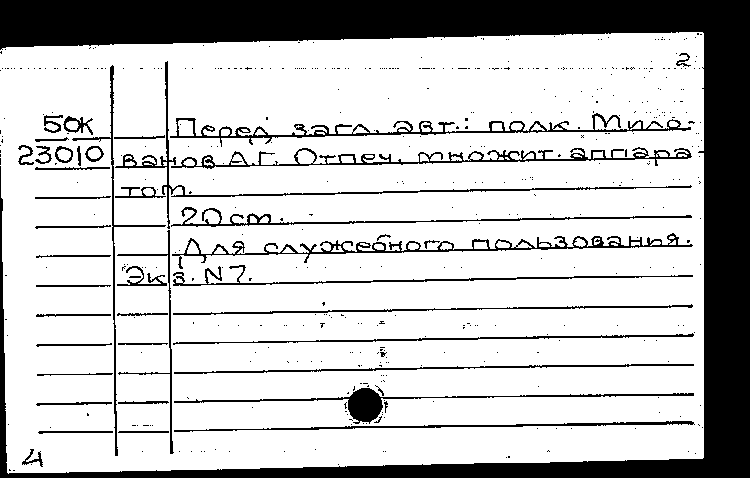 2
50К Перед загл. авт.: полк. Мило-
23010 ванов А.Г. Отпеч. множит. аппара-
том.
20 см.
Для служебного пользования.
Экз. N7.
4